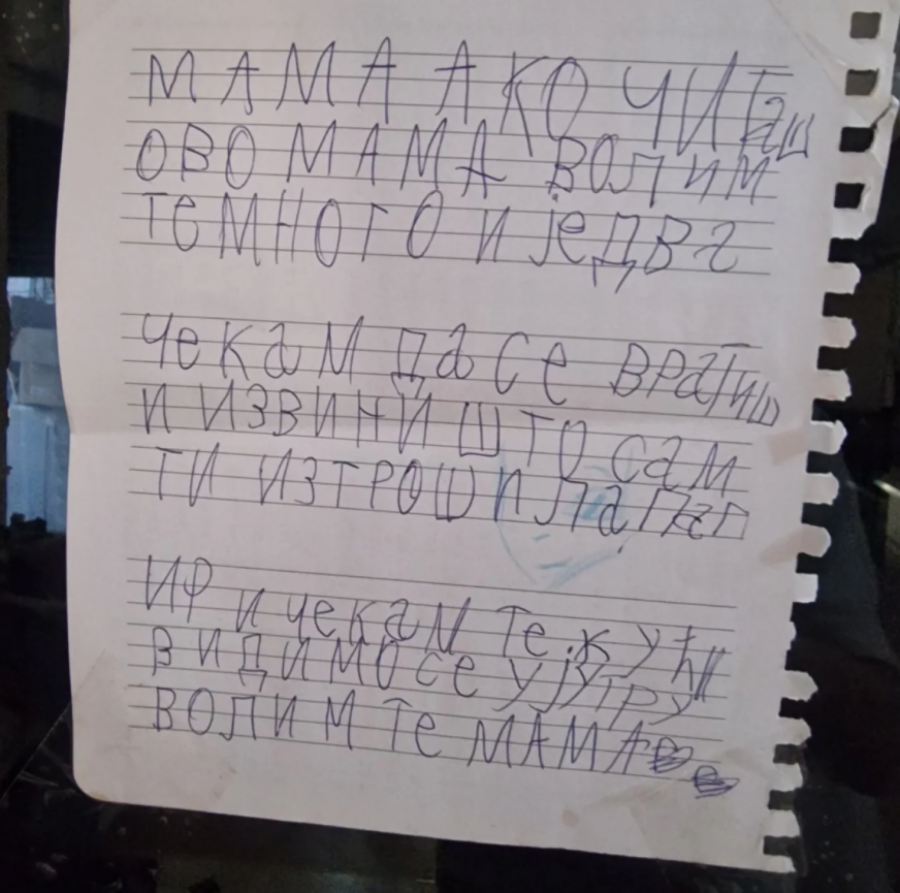 МАМА АКО ЧИТаш
ОВО МАМА ВОЛИМ
ТеМНОГО И ЈеДВа
ЧеКаМ Да Се ВРаТиш
И ИЗВИНИ ШТО СаМ
ТИ ИЗТРОШИЛа ПаП
ИР И ЧеКаМ Те КУЋИ
ВИДИМОСе УЈУТРУ
ВОЛИМ Те МАМА